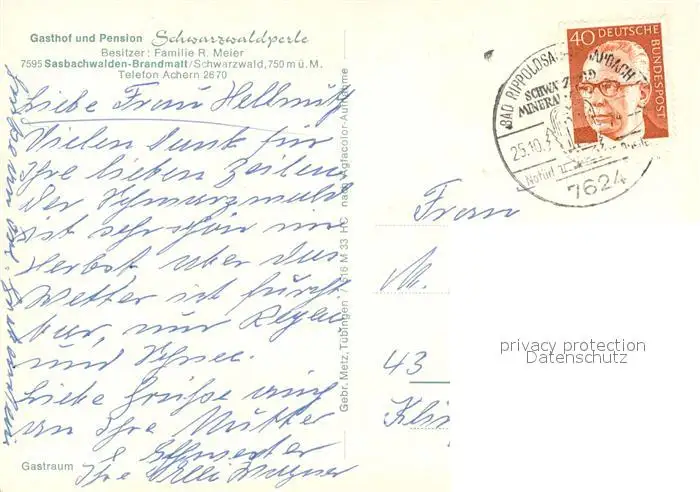 Gasthof und Pension Schwarzwaldperle
Besitzer: Familie R. Meier
7595 Sasbachwalden-Brandmatt/Schwarzwald, 750 m ü. M.
Telefon Achern 2670
Liebe Frau Hellmuth
Vielen Dank für
Ihre lieben Zeilen
der Schwarzwald
ist sehr schön im
Herbst aber das
Wetter ist furcht
bar, nur Regen
und Schnee.
Liebe Grüße auch
an Ihre Mutter
Schwester
Ihre Willi Wagner
Gastraum
Gebr. Metz, Tübingen 7616 M 33 HC nach Agfacolor Aufnahme
40 DEUTSCHE BUNDESPOST
BAD RIPPOLDSAU
25.10.7
7624
Frau
M.
43
privacy protection
Datenschutz